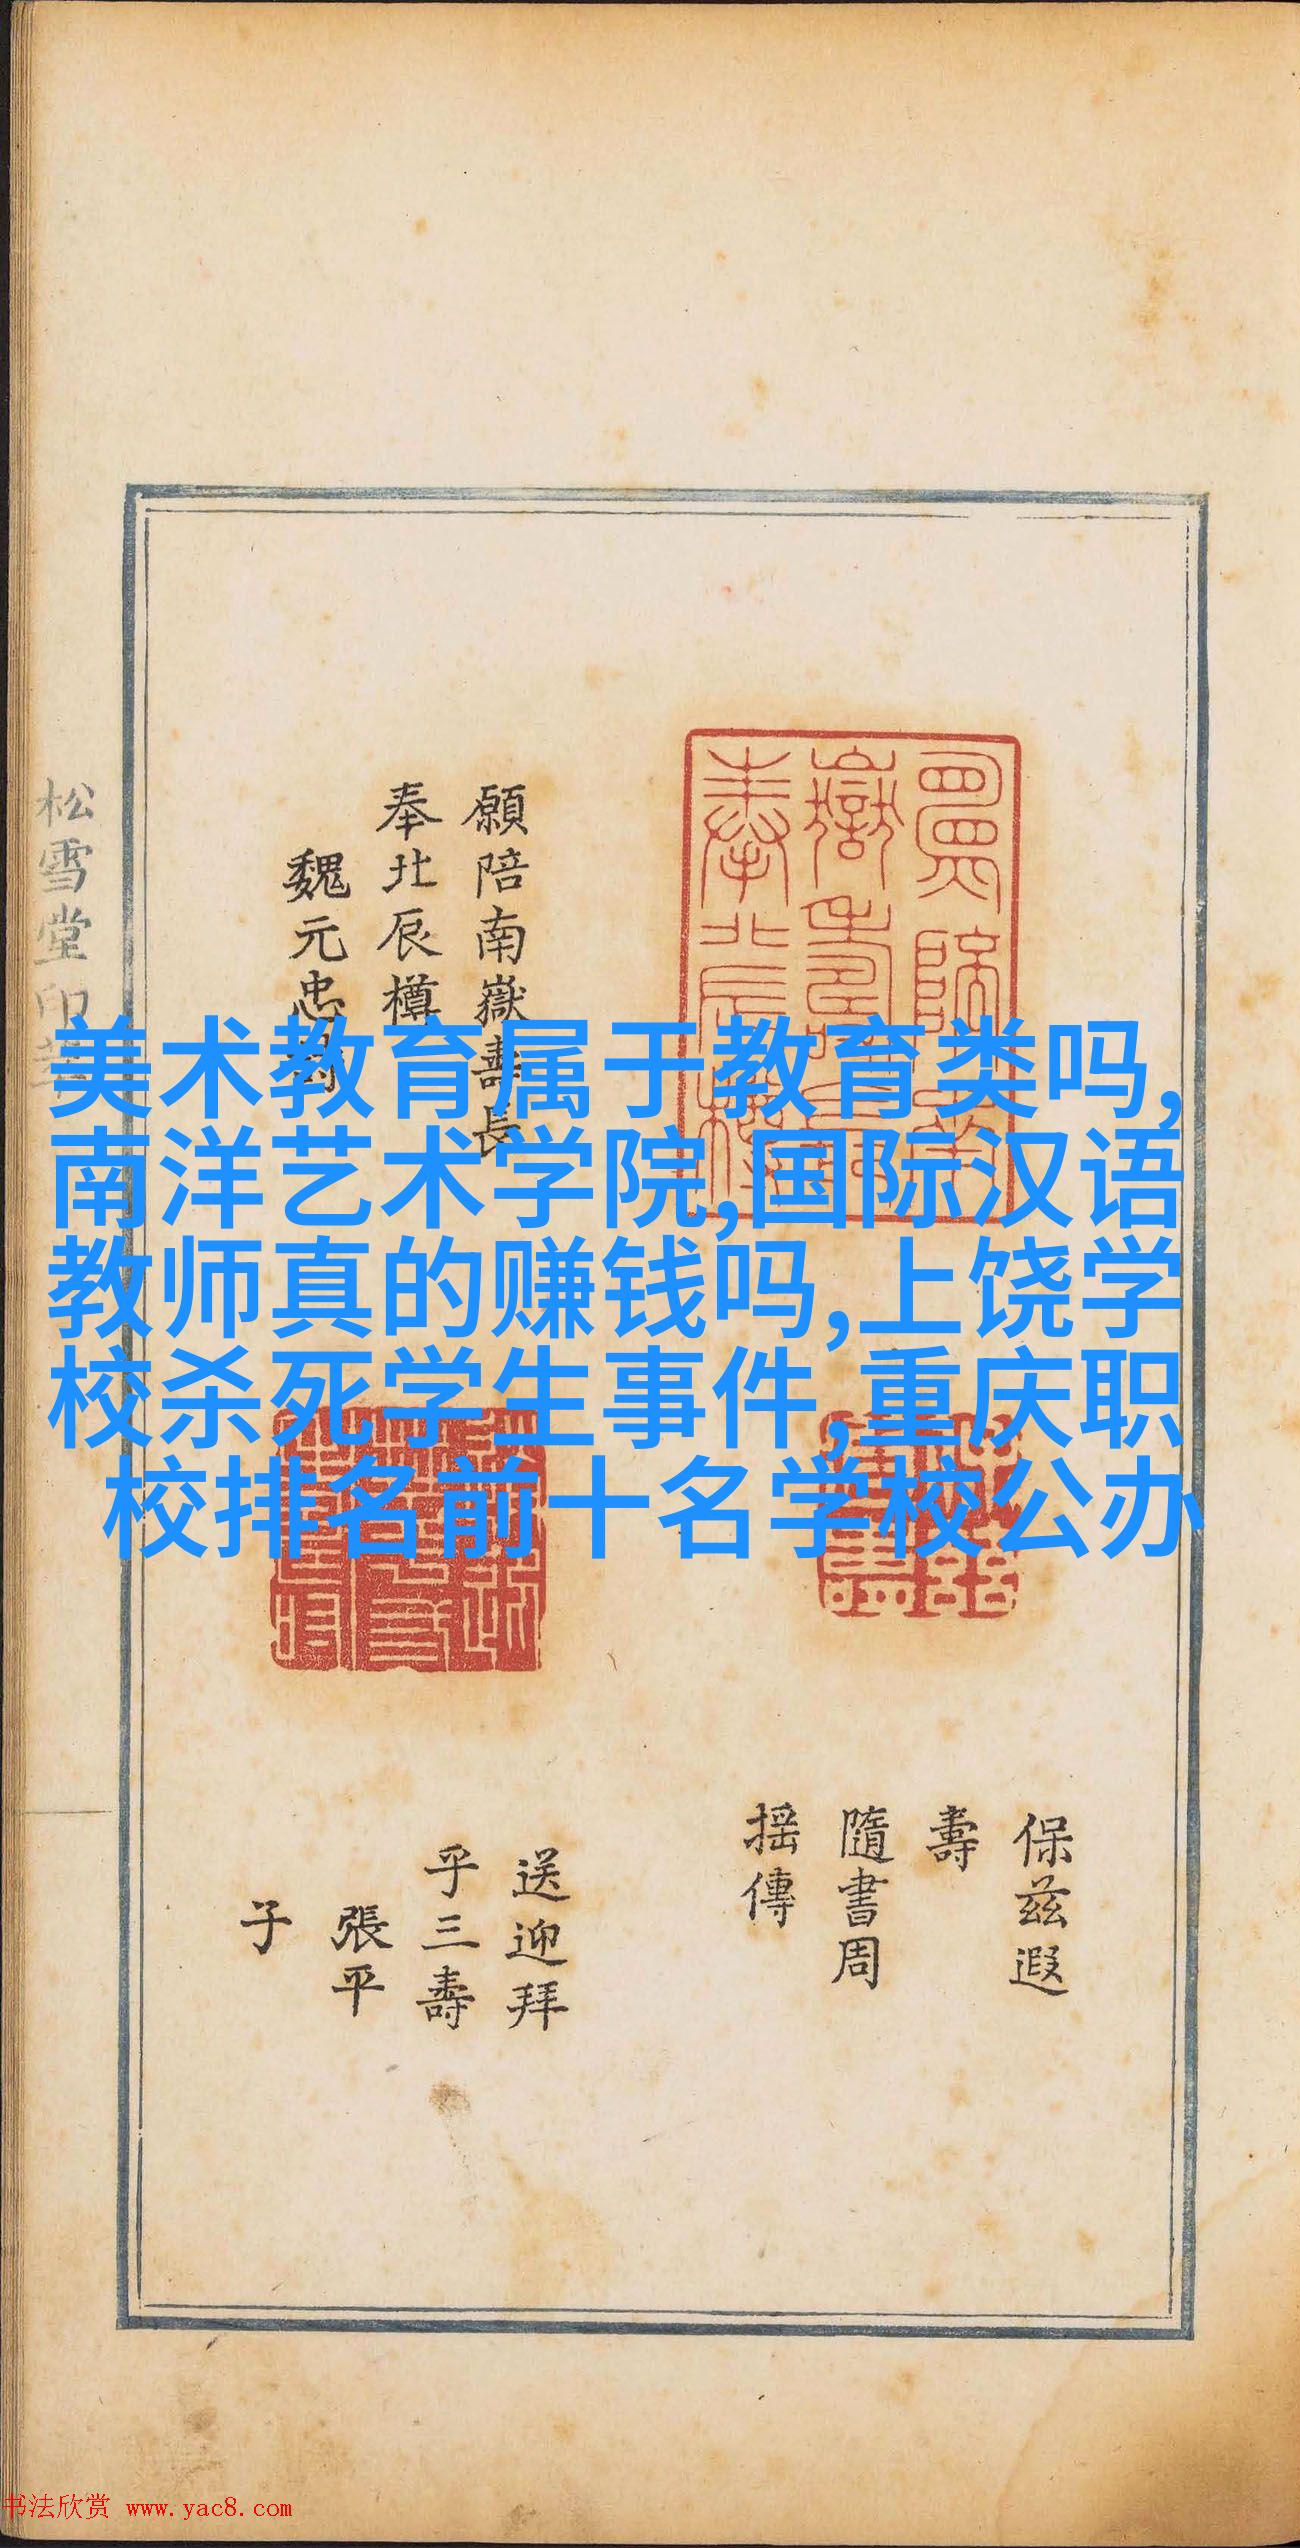 願陪南嶽壽長
奉北辰樽
魏元忠
松雪堂印
美术教育属于教育类吗,
南洋艺术学院,国际汉语
教师真的赚钱吗,上饶学
校杀死学生事件,重庆职
校排名前十名学校公办
保兹遐
壽
隨書周
摇傳
送迎拜
乎三壽
張平
子
书法欣赏 www.yac8.com